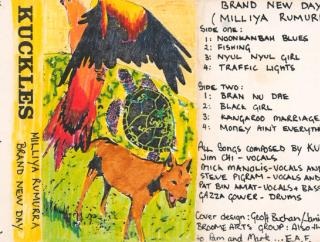 KUCKLES
MILLIYA RUMURRA
BRAND NEW DAY
BRAND NEW DAY
(MILLIYA RUMURR
SIDE ONE:
1: NOONKANBAH BLUES
2: FISHING
3: NYUL NYUL GIRL
4: TRAFFIC LIGHTS
SIDE TWO:
1: BRAN NU DAE
2: BLACK GIRL
3: KANGAROO MARRIAGE
4: MONEY AIN'T EVERYTH
ALL SONGS COMPOSED BY KU
JIM CHI - VOCALS
MICK MANOLIS - VOCALS AN
STEVE PIGRAM - VOCALS AND
PAT BIN AMAT - VOCALS + BASS
GAZZA GOWER - DRUMS
Cover design: Geoff Buchan/Jani
BROOME ARTS GROUP: Also th
to Pam and Mark ... E.A.F.